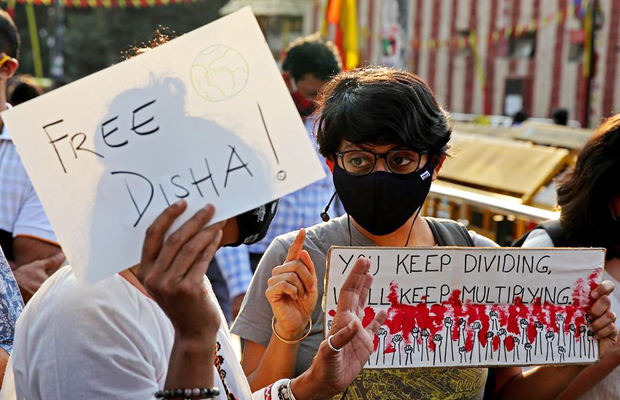 FREE
DISHA!
YOU KEEP DIVIDING,
WE'LL KEEP MULTIPLYING.